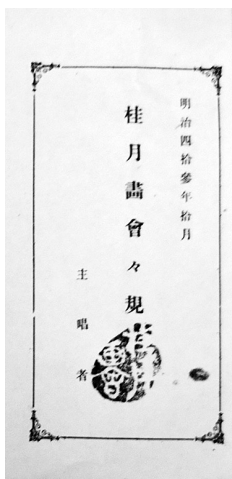 明治四拾參年拾月
桂月畵會々規
主唱者